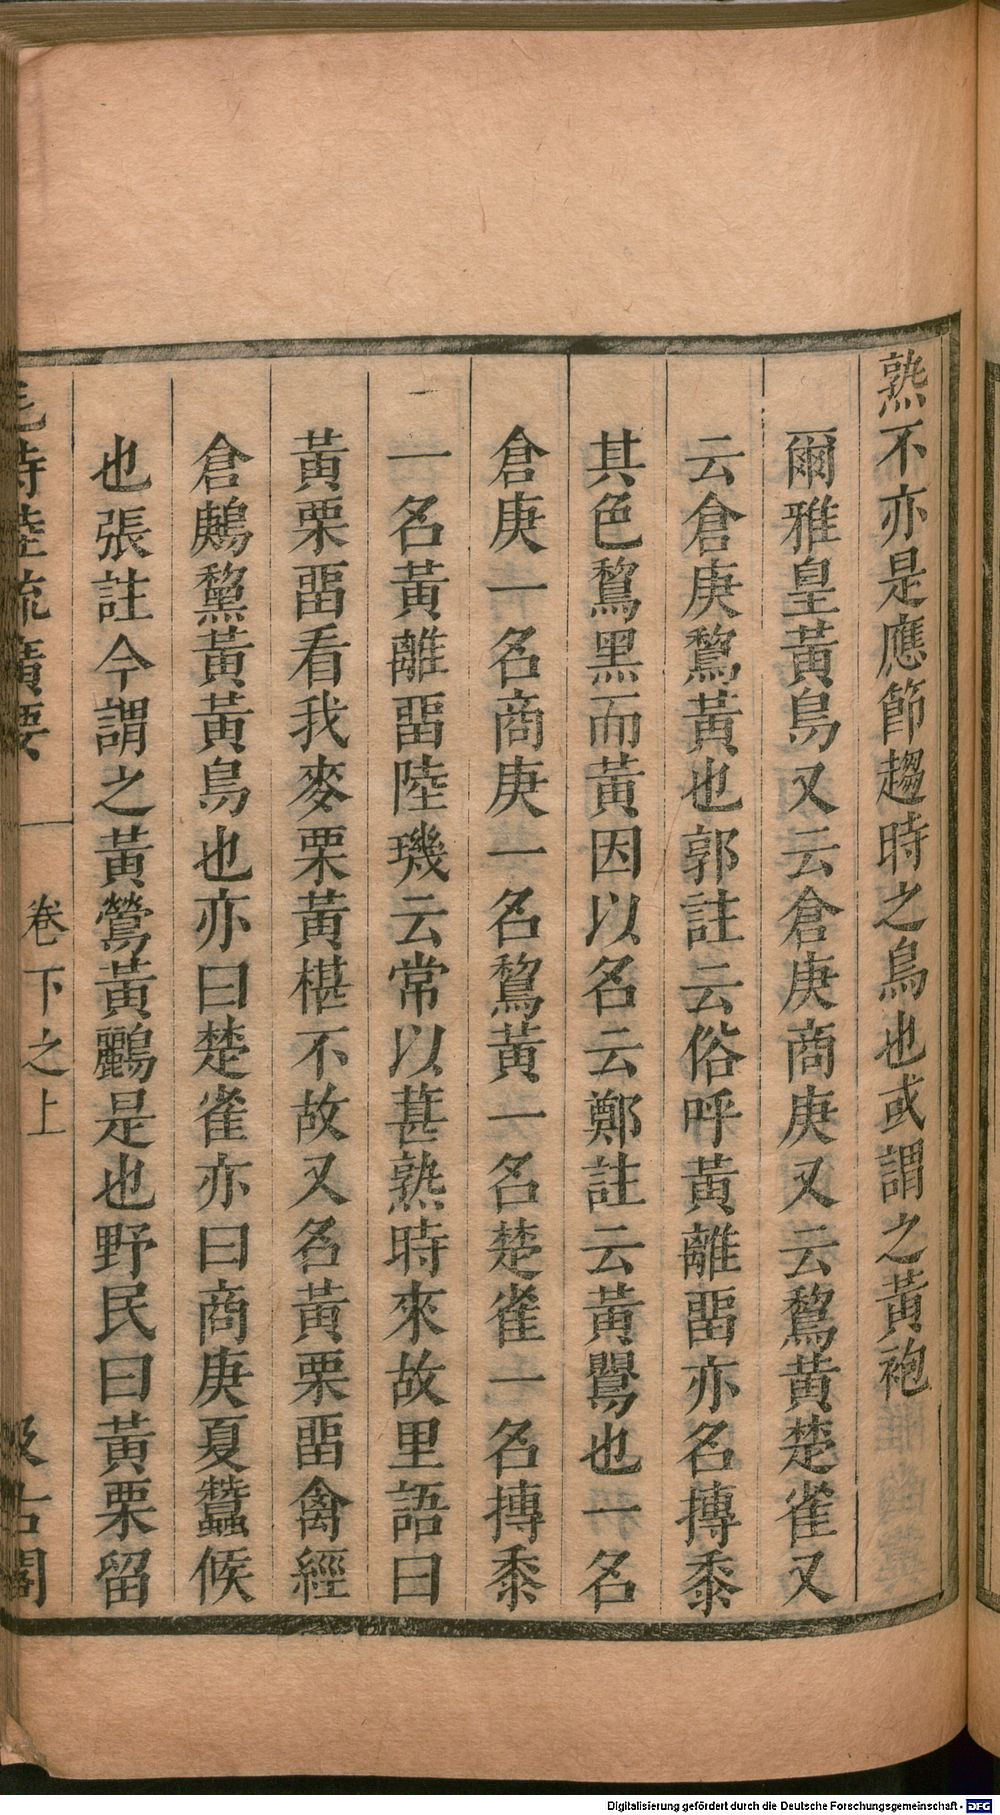 熟不亦是應節趨時之鳥也或謂之黃袍
爾雅皇黃鳥又云倉庚商庚又云鵹黃楚雀又
云倉庚鵹黃也郭註云俗呼黃離畱亦名摶黍
其色鵹黑而黃因以名云鄭註云黃鸎也一名
倉庚一名商庚一名鵹黃一名楚雀一名摶黍
一名黃離畱陸璣云常以葚熟時來故里語曰
黃栗畱看我麥栗黃椹不故又名黃栗畱禽經
倉鶊黧黃黃鳥也亦曰楚雀亦曰商庚夏蠶候
也張註今謂之黃鶯黃鸝是也野民曰黃栗留
毛詩陸疏廣要 卷下之上 汲古閣
Digitalisierung gefördert durch die Deutsche Forschungsgemeinschaft - DFG